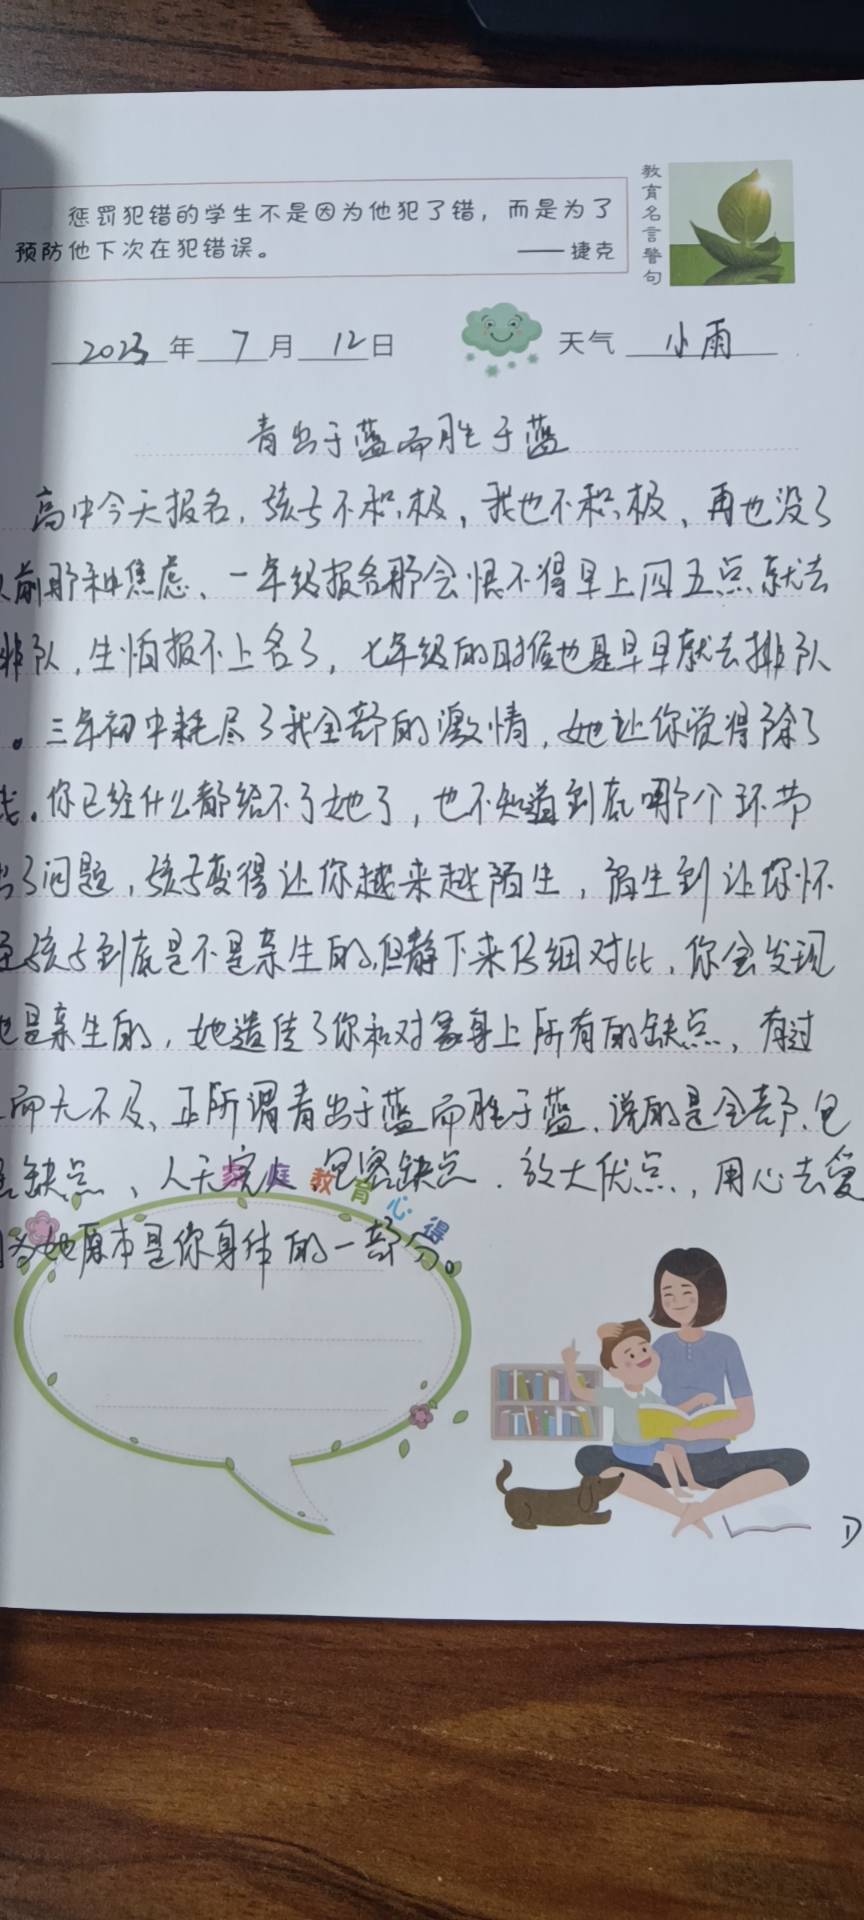 教育名言警句
惩罚犯错的学生不是因为他犯了错，而是为了
预防他下次在犯错误。
——捷克
2023年7月12日 天气 小雨
青出于蓝而胜于蓝
高中今天报名，孩子不积极，我也不积极，再也没了
以前那种焦虑、一年级报名那会恨不得早上四五点就去
排队，生怕报不上名了，七年级的时候也是早早就去排队
。三年初中耗尽了我全部的激情，她让你觉得除了
钱。你已经什么都给不了她了，也不知道到底哪个环节
出了问题，孩子变得让你越来越陌生，陌生到让你怀
孩子到底是不是亲生的，但静下来仔细对比，你会发现
也是亲生的，她遗传了你和对象身上所有的缺点，有过
而无不及、正所谓青出于蓝而胜于蓝，说的是全部，包
括缺点、人无完人，包容缺点．放大优点，用心去爱
因为她原本是你身体的一部分。
家庭教育心得